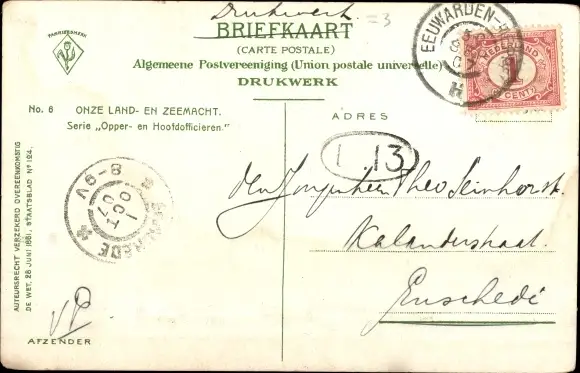 Drukwerk.
=3
FABRIEKSMERK
BRIEFKAART
(CARTE POSTALE)
Algemeene Postvereeniging (Union postale universelle)
DRUKWERK
EEUWARDEN
NEDERLAND
1
CENT
No. 6 ONZE LAND- EN ZEEMACHT.
Serie „Opper- en Hoofdofficieren."
ADRES
1.13
8-9V
1
OCT
07
den Jongenheer Theo Leinhorst.
Kalanderstraat.
Enschedé
AUTEURSRECHT VERZEKERD OVEREENKOMSTIG
DE WET, 28 JUNI 1881, STAATSBLAD No 124.
VP
AFZENDER